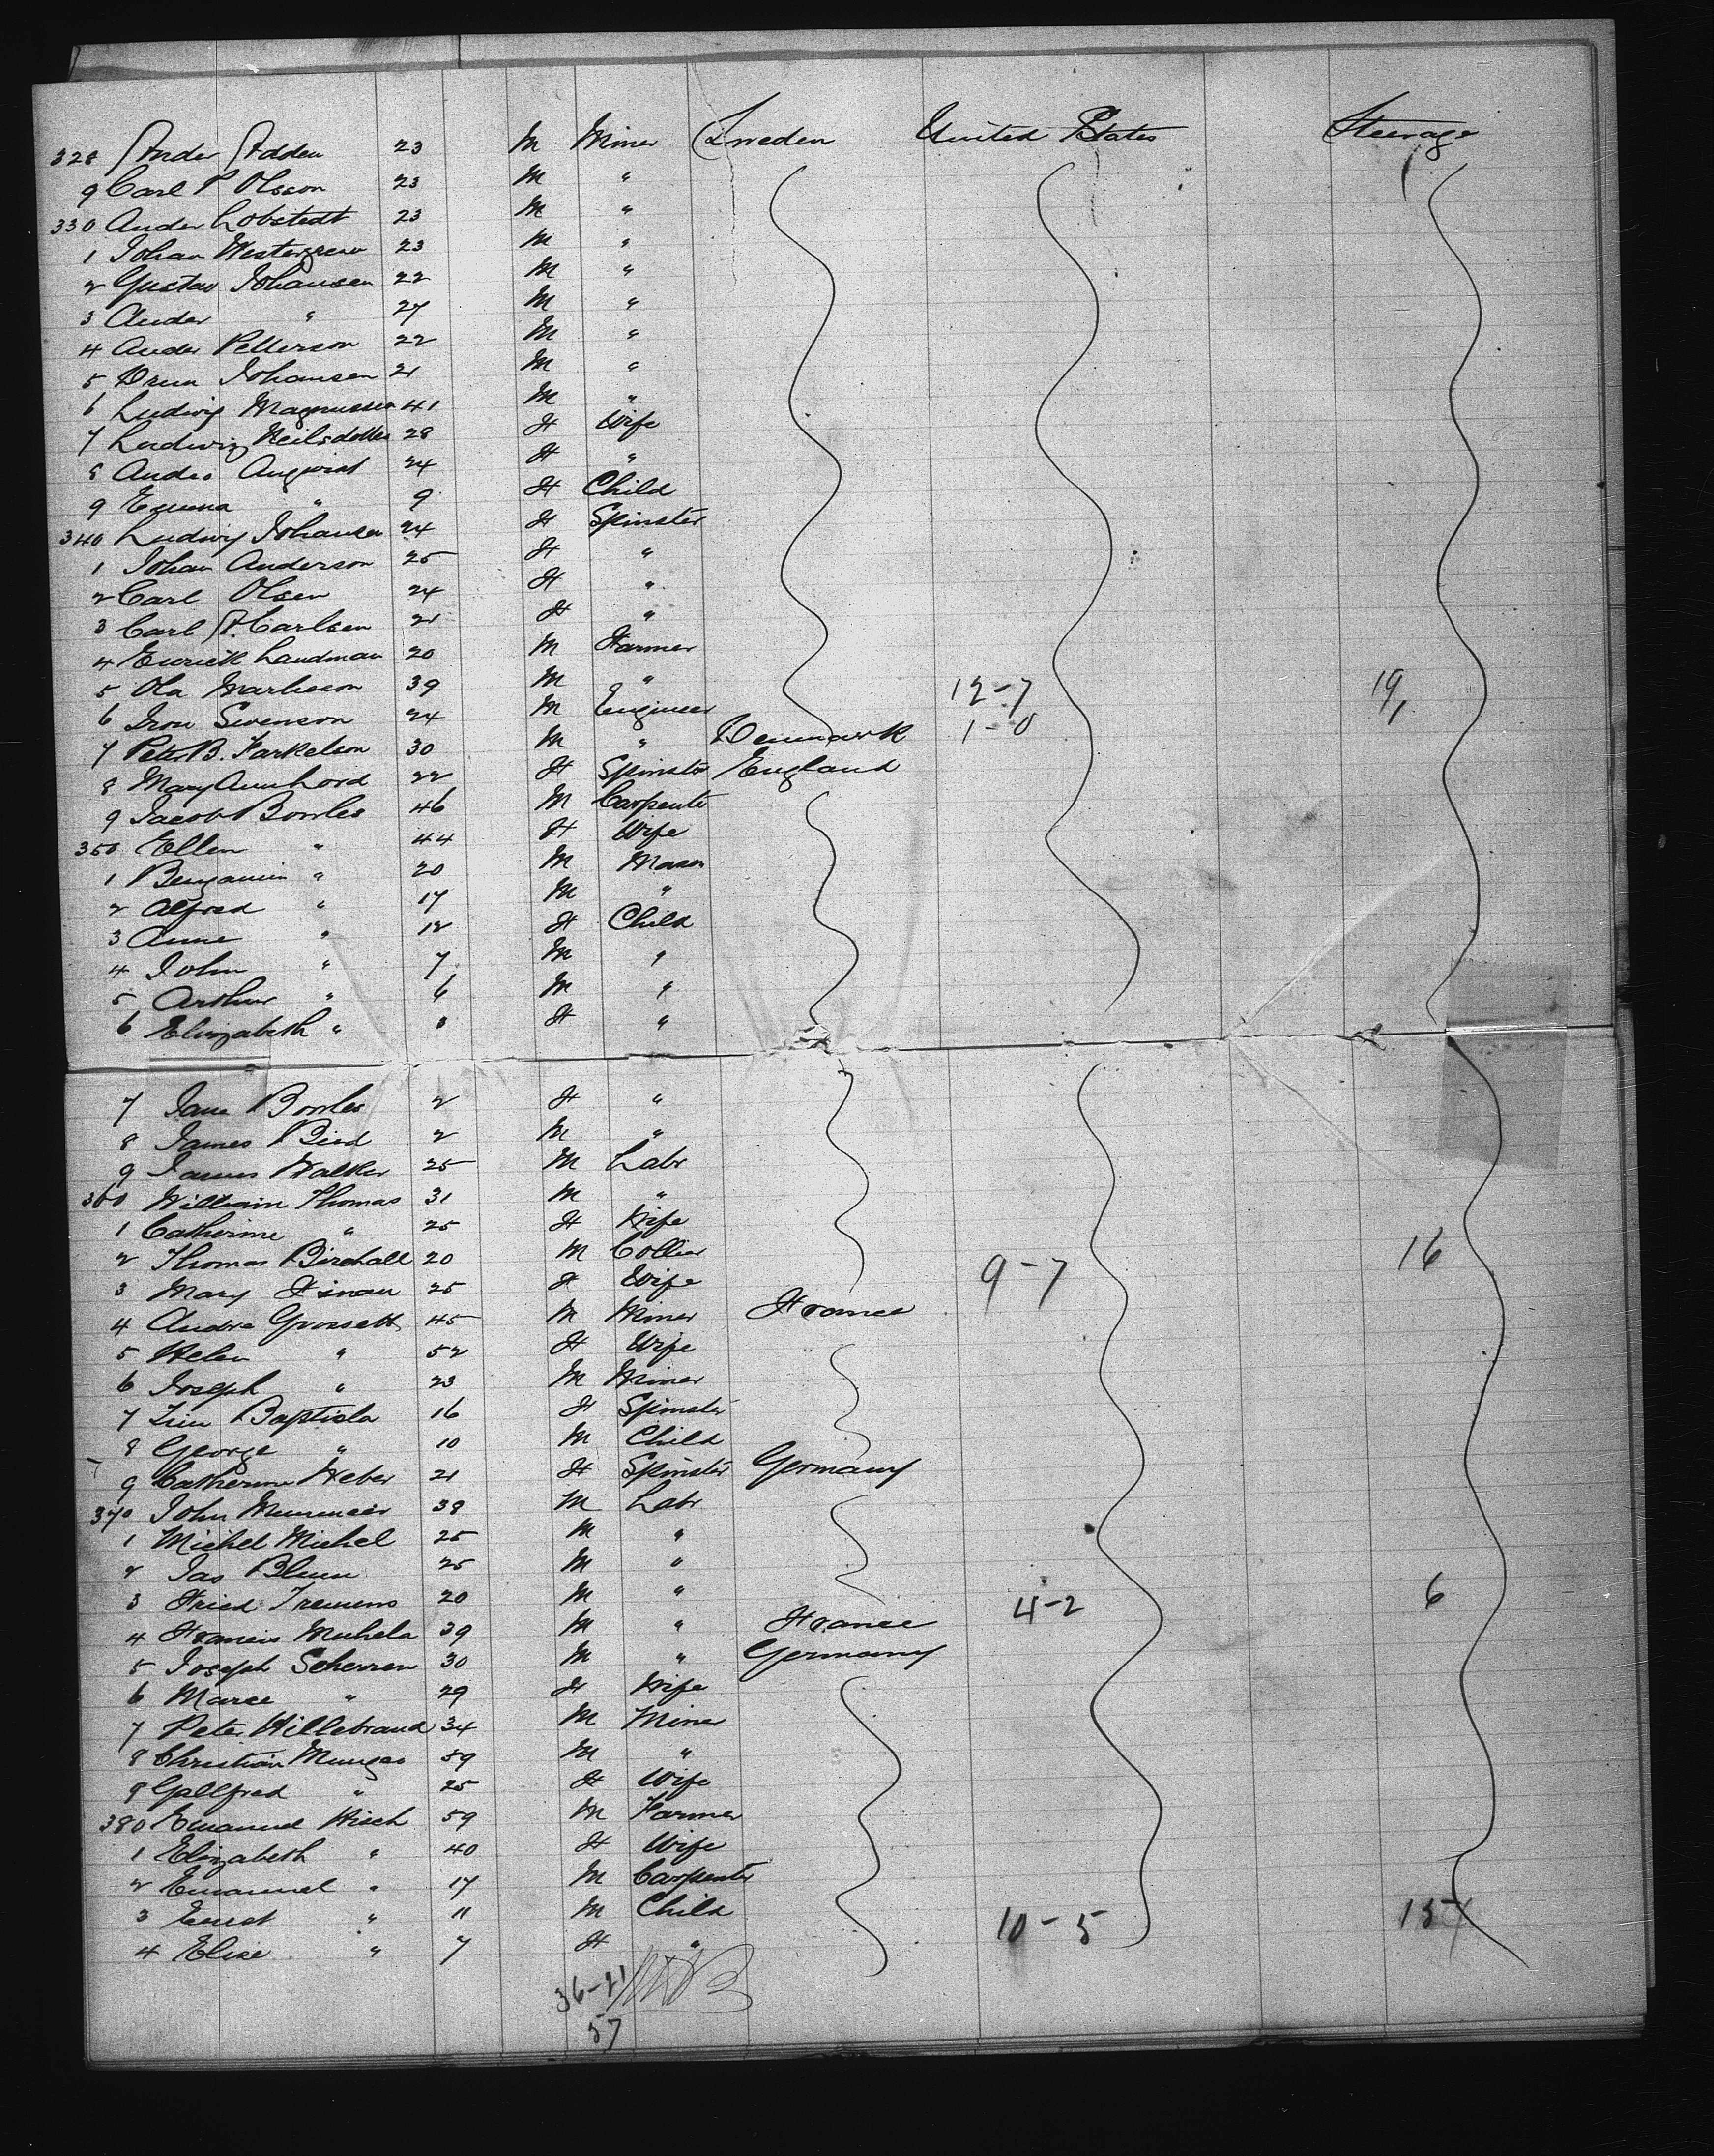 328 Ander Adden 23 M Miner Sweden United States Steerage
9 Carl P Olsson 23 M "
330 Ander Lobstedt 23 M "
1 Johan Westergren 23 M "
2 Gustav Johansen 22 M "
3 Ander " 27 M "
4 Ander Petterson 22 M "
5 Johansen 21 M "
6 Ludwig Magnussen 41 M "
7 Ludwig Neilsdotter 28 F Wife
8 Andro Angwist 24 F "
9 Emma " 9 F Child
340 Ludwig Johansen 24 F Spinster
1 Johan Anderson 25 F "
2 Carl Olsen 24 F "
3 Carl A. Carlsen 21 F "
4 Enrick Landman 20 M Farmer
5 Ola 39 M " 12-7 19
6 Swenson 24 M Engineer 1-0
7 Peter B. Farkelson 30 M " Denmark
8 Mary Ann Lord 22 F Spinster England
9 Jacob Bowles 46 M Carpenter
350 Ellen " 44 F Wife
1 Benjamin " 20 M Mason
2 Alfred " 17 M "
3 Anne " 12 F Child
4 John " 7 M "
5 Arthur " 6 M "
6 Elizabeth " F "
7 Jane Bowles 2 F "
8 James Bird 2 M "
9 James Walker 25 M Labr
360 William Thomas 31 M "
1 Catherine " 25 F Wife
2 Thomas Birchall 20 M Collier 16
3 Mary Finan 25 F Wife 9-7
4 Andre Grossett 45 M Miner France
5 Helen " 52 F Wife
6 Joseph " 23 M Miner
7 Baptista 16 F Spinster
8 George " 10 M Child
9 Catherine Weber 21 F Spinster Germany
370 John 38 M Labr
1 Michel Michel 25 M "
2 Jas Blum 25 M "
3 Fried Tremens 20 M " 4-2 6
4 Francis Muchela 39 M " France
5 Joseph Scherren 30 M " Germany
6 Maree " 29 F Wife
7 Peter Hillebrand 34 M Miner
8 Christian Munges 59 M "
9 Gallfred " 25 F Wife
380 Emanuel Hisch 59 M Farmer
1 Elizabeth " 40 F Wife
2 Emanuel " 17 M Carpenter
3 Ernst " 11 M Child 10-5 15
4 Elise " 7 F "
36-21
57